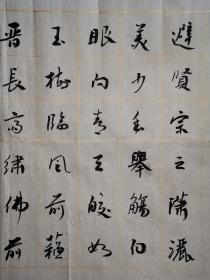 避賢宗之瀟灑
美少年舉觴白
眼向青天皎如
玉樹臨風前蘇
晉長齋繡佛前